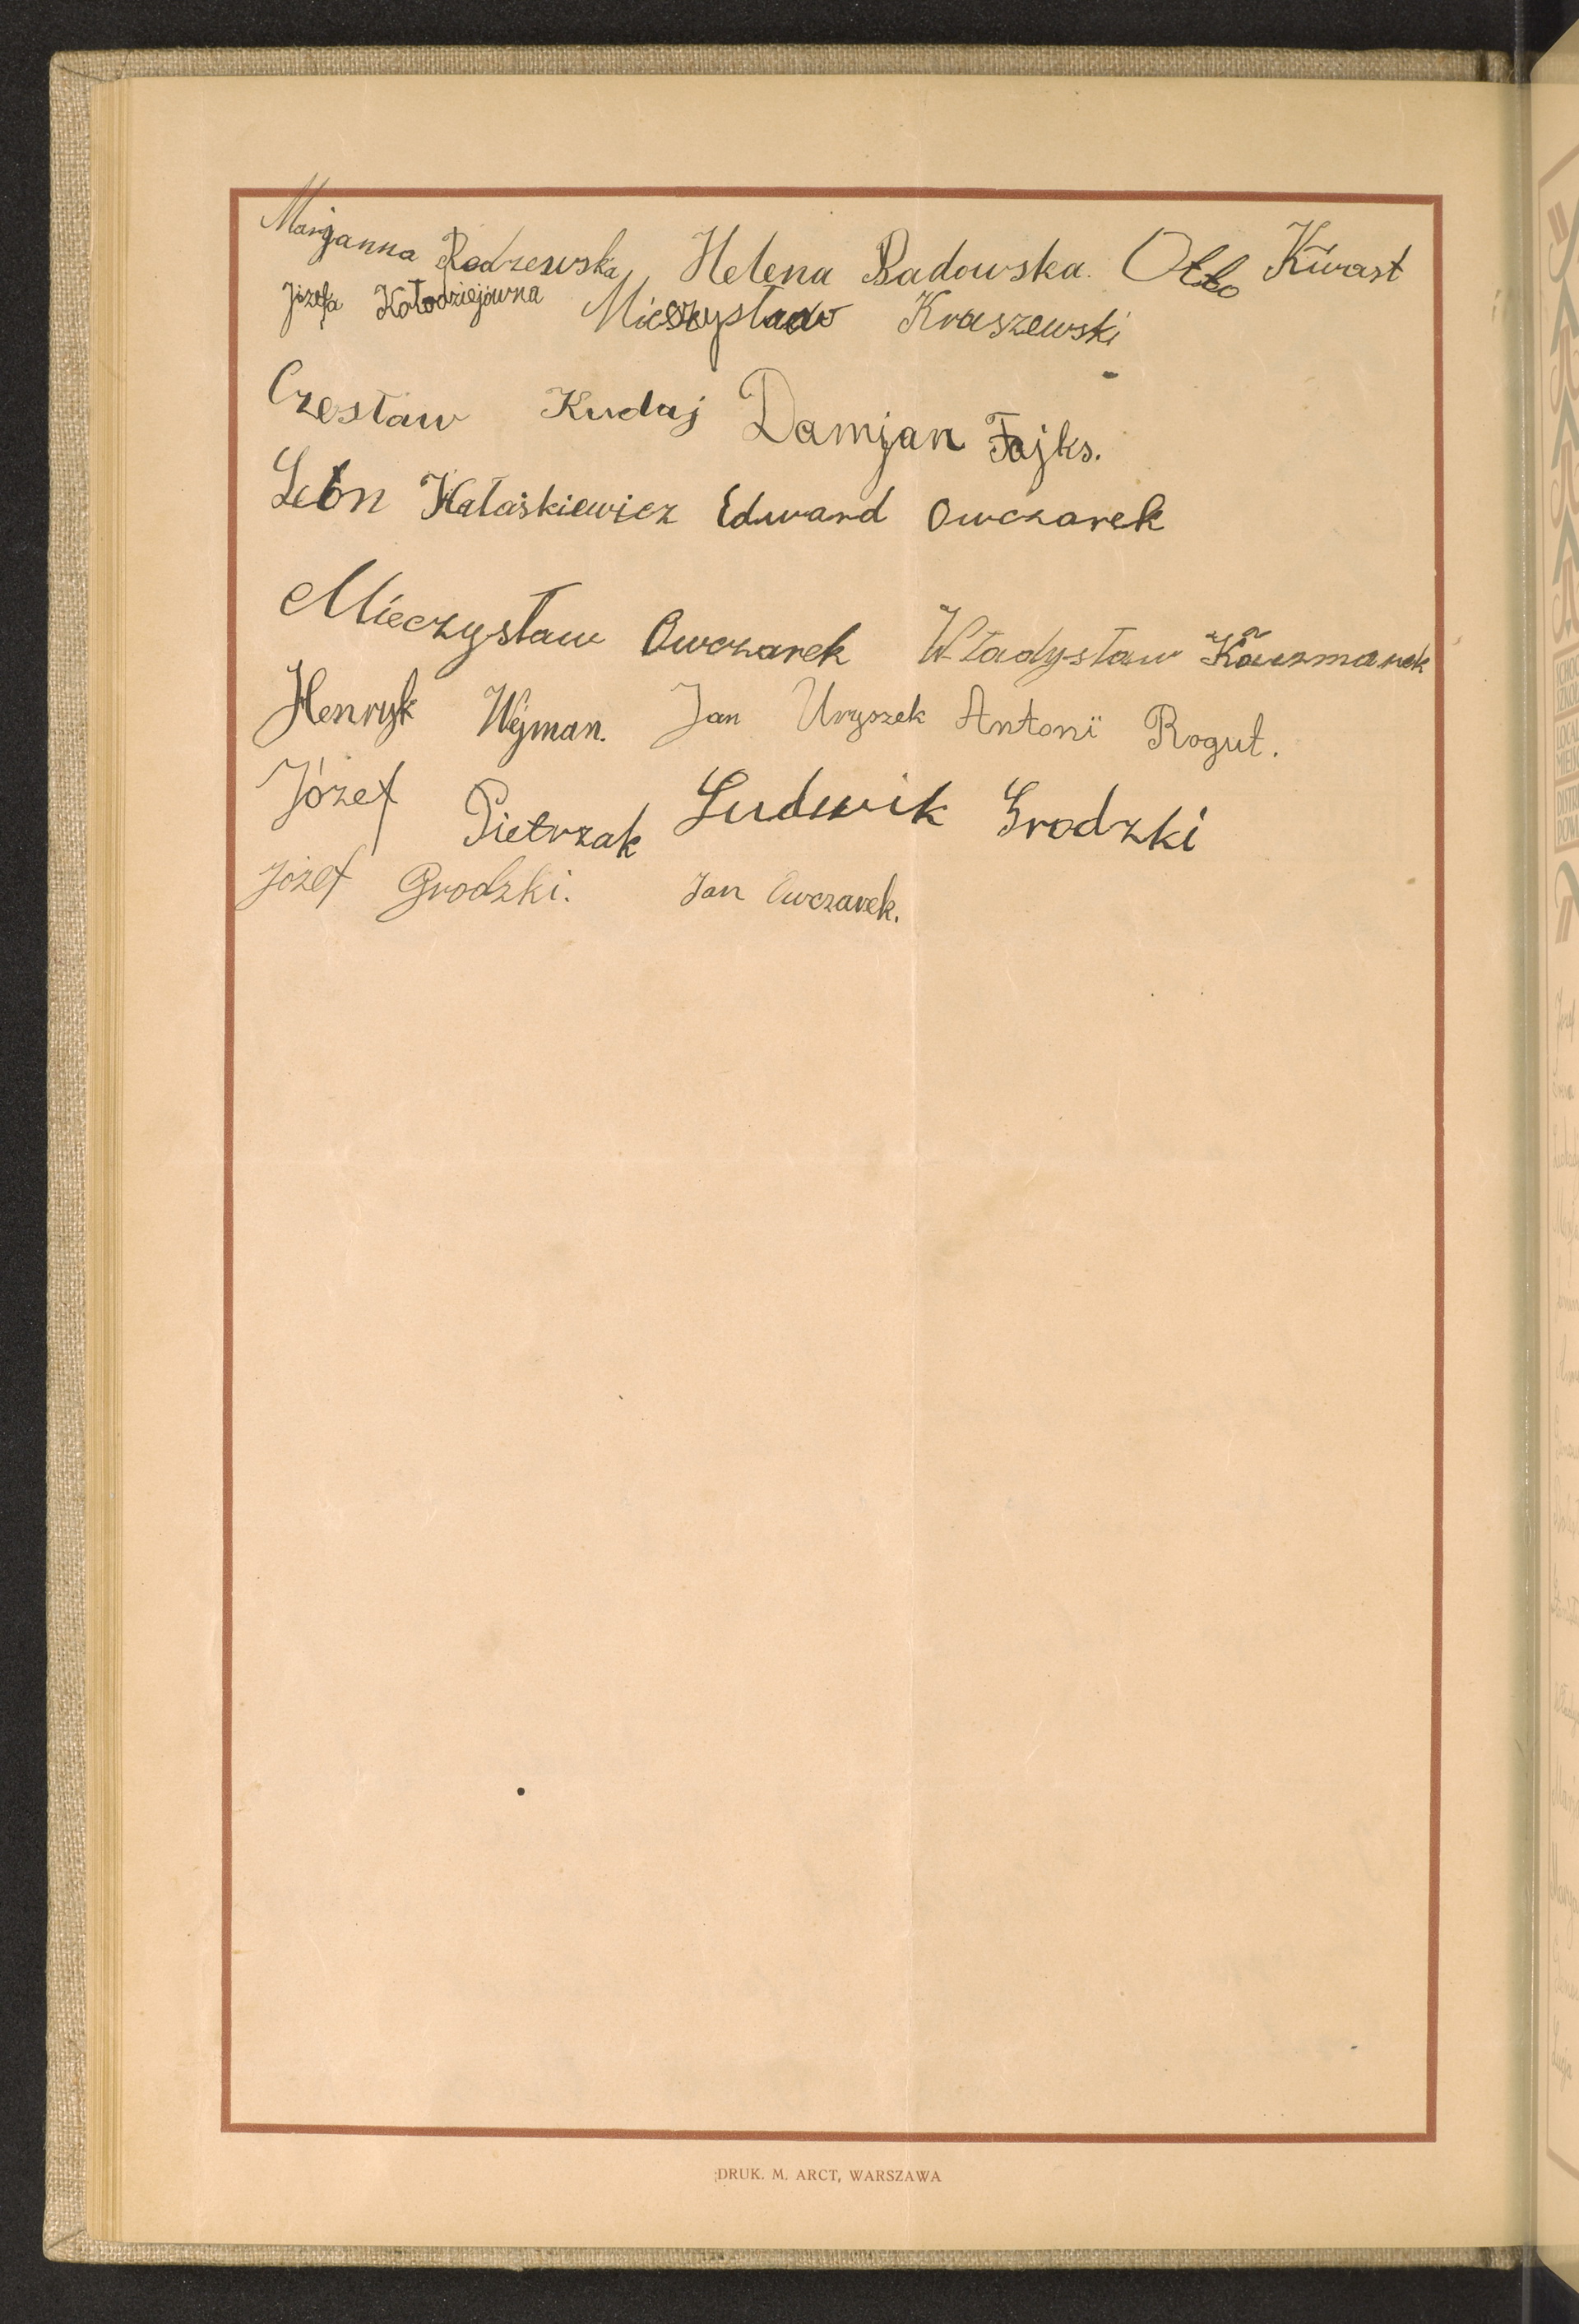 Marjanna Rodzewska, Helena Badowska. Otto Kwast
Józefa Kołodziejówna Mieczysław Kraszewski
Czesław Kudaj Damjan Fajks.
Leon Hałaśkiewicz Edward Owczarek
Mieczysław Owczarek Władysław Kaczmarek
Henryk Wejman. Jan Uryszek Antoni Rogut.
Józef Pietrzak Ludwik Grodzki
Józef Grodzki. Jan Owczarek.
DRUK. M. ARCT, WARSZAWA